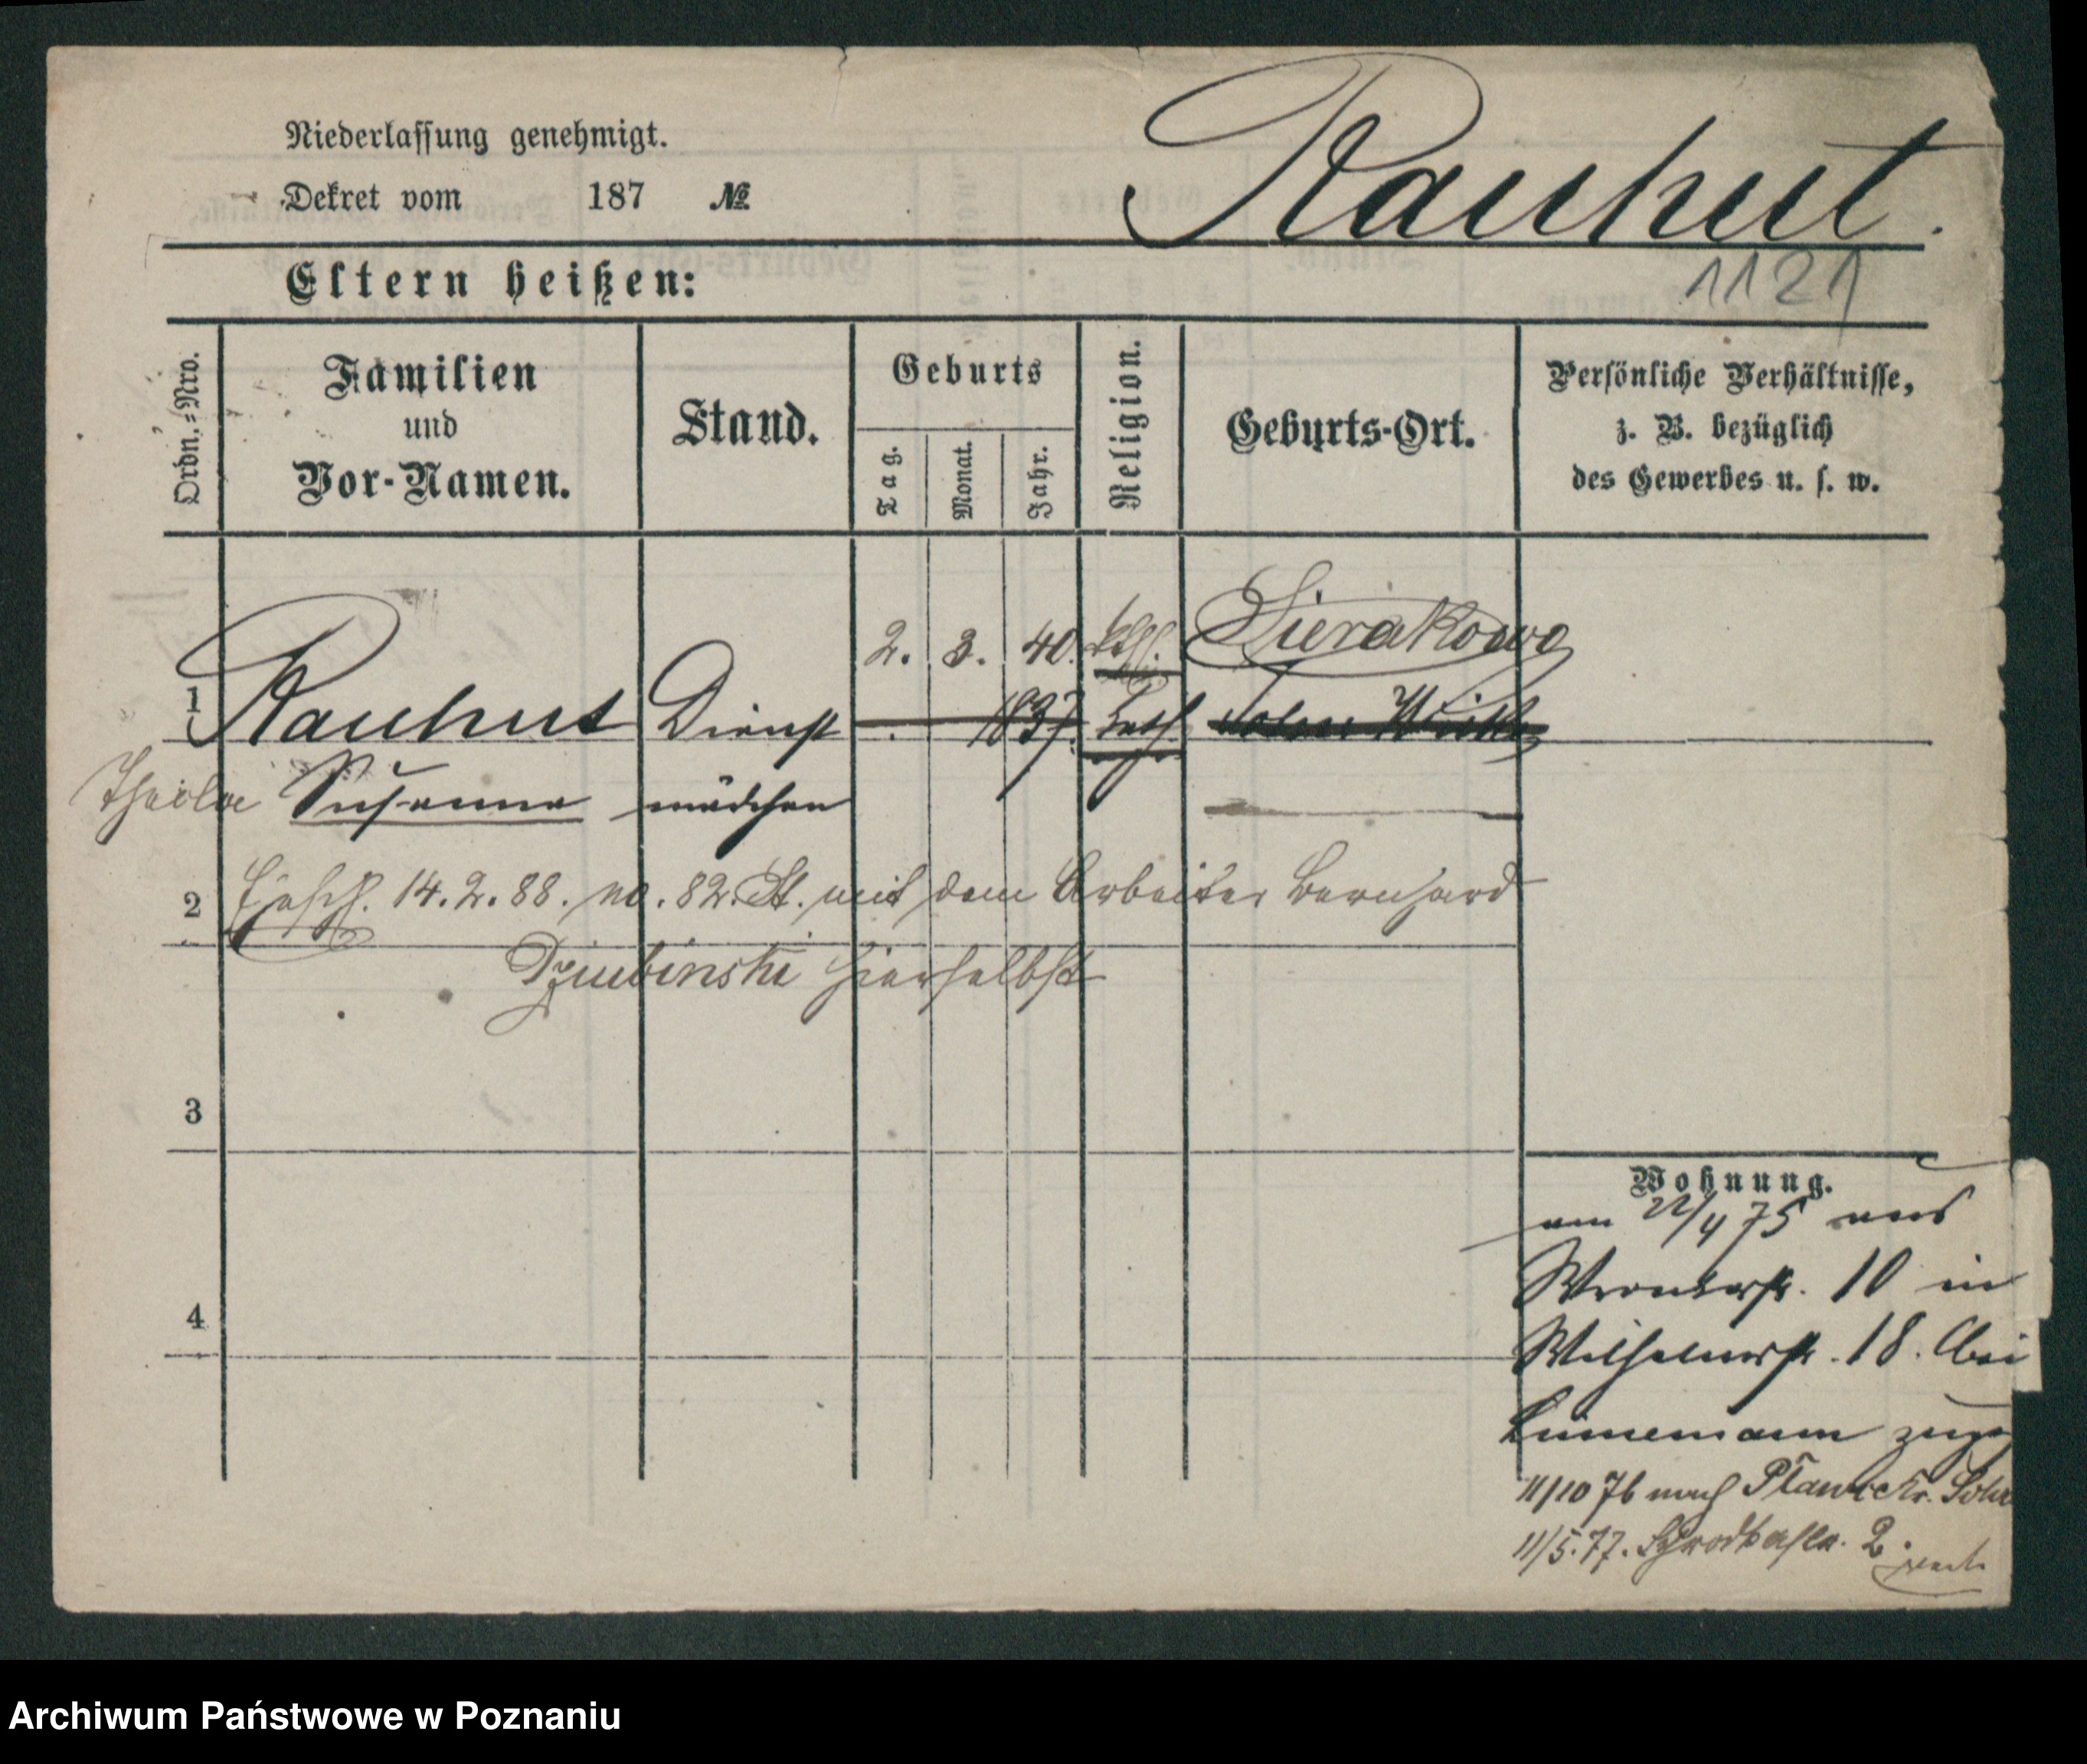 Niederlassung genehmigt.
Dekret vom 187 №
Rauhut.
1121
Eltern heißen:
Ordn.-Nro.
Familien
und
Vor-Namen.
Stand.
Geburts
Tag.
Monat.
Jahr.
Religion.
Geburts-Ort.
Persönliche Verhältnisse,
z. B. bezüglich
des Gewerbes u. s. w.
2. 3. 40. kath. Sierakowo
1 Rauhut Dienst 1837. kath
Susanna mädchen
2 14.2.88. no. 82. St. mit dem Arbeiter Bernhard
Dziubinski hierselbst
3
4
Wohnung.
am 22/4 75 aus
Wronkerstr. 10 in
Wilhelmstr. 18. bei
Lünemann
11/10 76 nach
11/5.77. 2.
Archiwum Państwowe w Poznaniu